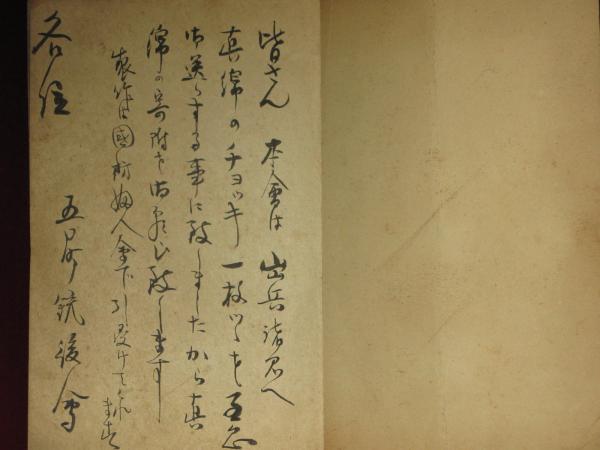 皆さん 本會は 出兵諸君へ
真綿のチョッキ一枚づゝを至急
御送りする事に致しましたから真
綿の寄附を御願ひ致します
製作は國防婦人會で引受けて
各位
銃後會